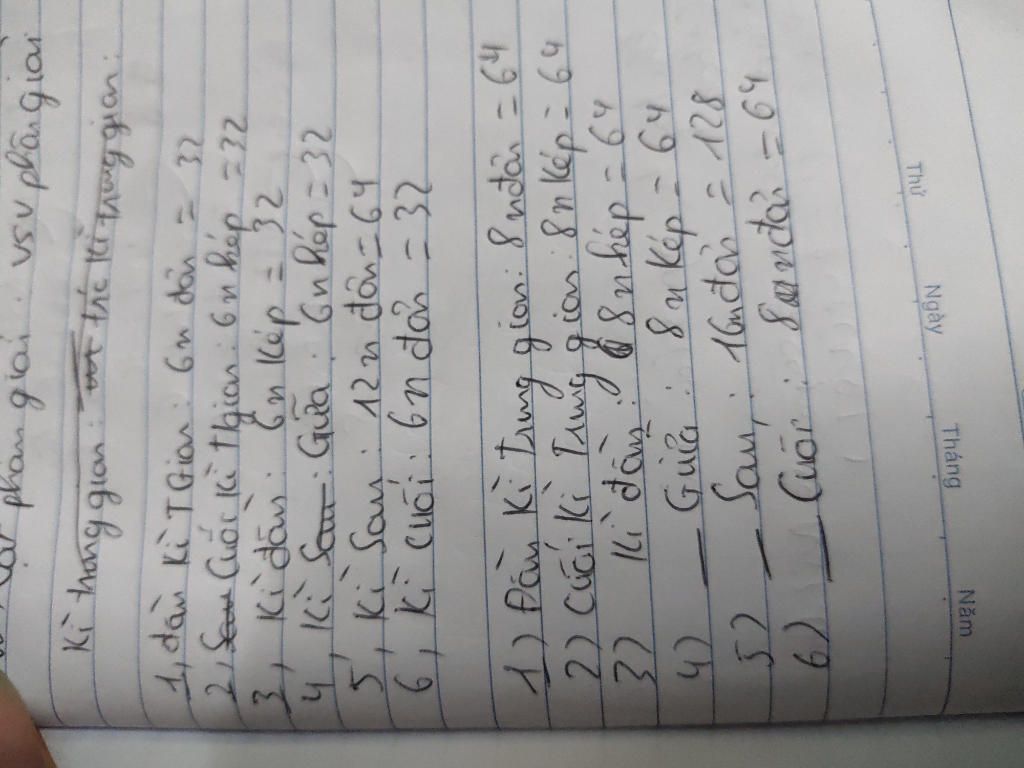 phân giải. vs v phân giải
Kì trung gian: trc kì trung gian.
1, đần Kì TGian: 6n đơn = 32
2, Cuối Kì tgian: 6n kép = 32
3, Kì đần: 6n kép = 32
4, Kì Giữa: 6n kép = 32
5, Kì Sau: 12n đơn = 64
6, Kì cuối: 6n đơn = 32
1) Đần Kì Trung gian: 8n đơn = 64
2) Cuối Kì Trung gian: 8n kép = 64
3) Kì đần: 8n kép = 64
4) — Giữa: 8n kép = 64
5) — Sau: 16n đơn = 128
6) — Cuối: 8n đơn = 64
Thứ Ngày Tháng Năm